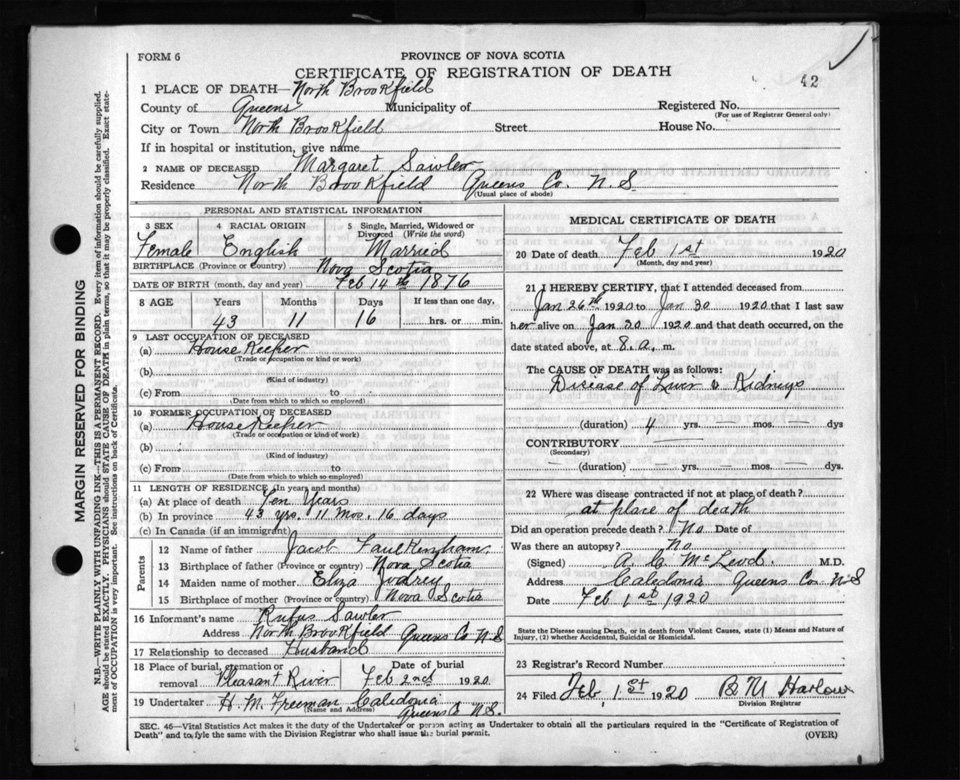 FORM 6
PROVINCE OF NOVA SCOTIA
CERTIFICATE OF REGISTRATION OF DEATH
42
1 PLACE OF DEATH—North Brookfield
County of Queens Municipality of Registered No.
(For use of Registrar General only)
City or Town North Brookfield Street House No.
If in hospital or institution, give name
2 NAME OF DECEASED Margaret Sawler
Residence North Brookfield Queens Co. N.S
(Usual place of abode)
PERSONAL AND STATISTICAL INFORMATION
3 SEX 4 RACIAL ORIGIN 5 Single, Married, Widowed or
Divorced (Write the word)
Female English Married
BIRTHPLACE (Province or Country) Nova Scotia
DATE OF BIRTH (month, day and year) Feb 14th 1876
8 AGE Years Months Days If less than one day,
43 11 16 hrs. or min.
9 LAST OCCUPATION OF DECEASED
(a) House Keeper
(Trade or occupation or kind or work)
(b)
(Kind of industry)
(c) From to
(Date from which to which so employed)
10 FORMER OCCUPATION OF DECEASED
(a) House Keeper
(Trade or occupation or kind of work)
(b)
(Kind of industry)
(c) From to
(Date from which to which so employed)
11 LENGTH OF RESIDENCE (In years and months)
(a) At place of death Ten Years
(b) In province 43 yrs. 11 Mos. 16 days
(c) In Canada (if an immigrant)
Parents
12 Name of father Jacob Faulkingham
13 Birthplace of father (Province or Country) Nova Scotia
14 Maiden name of mother Eliza
15 Birthplace of mother (Province or country) Nova Scotia
16 Informant's name Rufus Sawler
Address North Brookfield Queens Co N.S
17 Relationship to deceased Husband
18 Place of burial, cremation or removal Pleasant River Date of burial Feb 2nd 1920
19 Undertaker H. M. Freeman Caledonia
(Name and Address) Queens Co N.S.
MEDICAL CERTIFICATE OF DEATH
20 Date of death Feb 1st 1920
(Month, day and year)
21 I HEREBY CERTIFY, that I attended deceased from
Jan 26th 1920 to Jan 30 1920 that I last saw
her alive on Jan 30 1920 and that death occurred, on the
date stated above, at 8. a. m.
The CAUSE OF DEATH was as follows:
Disease of Liver & Kidneys
(duration) 4 yrs. — mos. — dys
CONTRIBUTORY —
(Secondary)
— (duration) — yrs. — mos. — dys.
22 Where was disease contracted if not at place of death?
at place of death
Did an operation precede death? No Date of
Was there an autopsy? No
(Signed) A. C. McLeod. M.D.
Address Caledonia Queens Co. N.S
Date Feb 1st 1920
State the Disease causing Death, or in death from Violent Causes, state (1) Means and Nature of
Injury, (2) whether Accidental, Suicidal or Homicidal.
23 Registrar's Record Number
24 Filed Feb 1st 1920 B M Harlow
Division Registrar
SEC. 46—Vital Statistics Act makes it the duty of the Undertaker or person acting as Undertaker to obtain all the particulars required in the "Certificate of Registration of
Death" and to file the same with the Division Registrar who shall issue the burial permit. (OVER)
MARGIN RESERVED FOR BINDING
N.B.—WRITE PLAINLY WITH UNFADING INK—THIS IS A PERMANENT RECORD. Every item of information should be carefully supplied.
AGE should be stated EXACTLY. PHYSICIANS should STATE CAUSE OF DEATH in plain terms, so that it may be properly classified. Exact statement of OCCUPATION is very important. See instructions on back of Certificate.